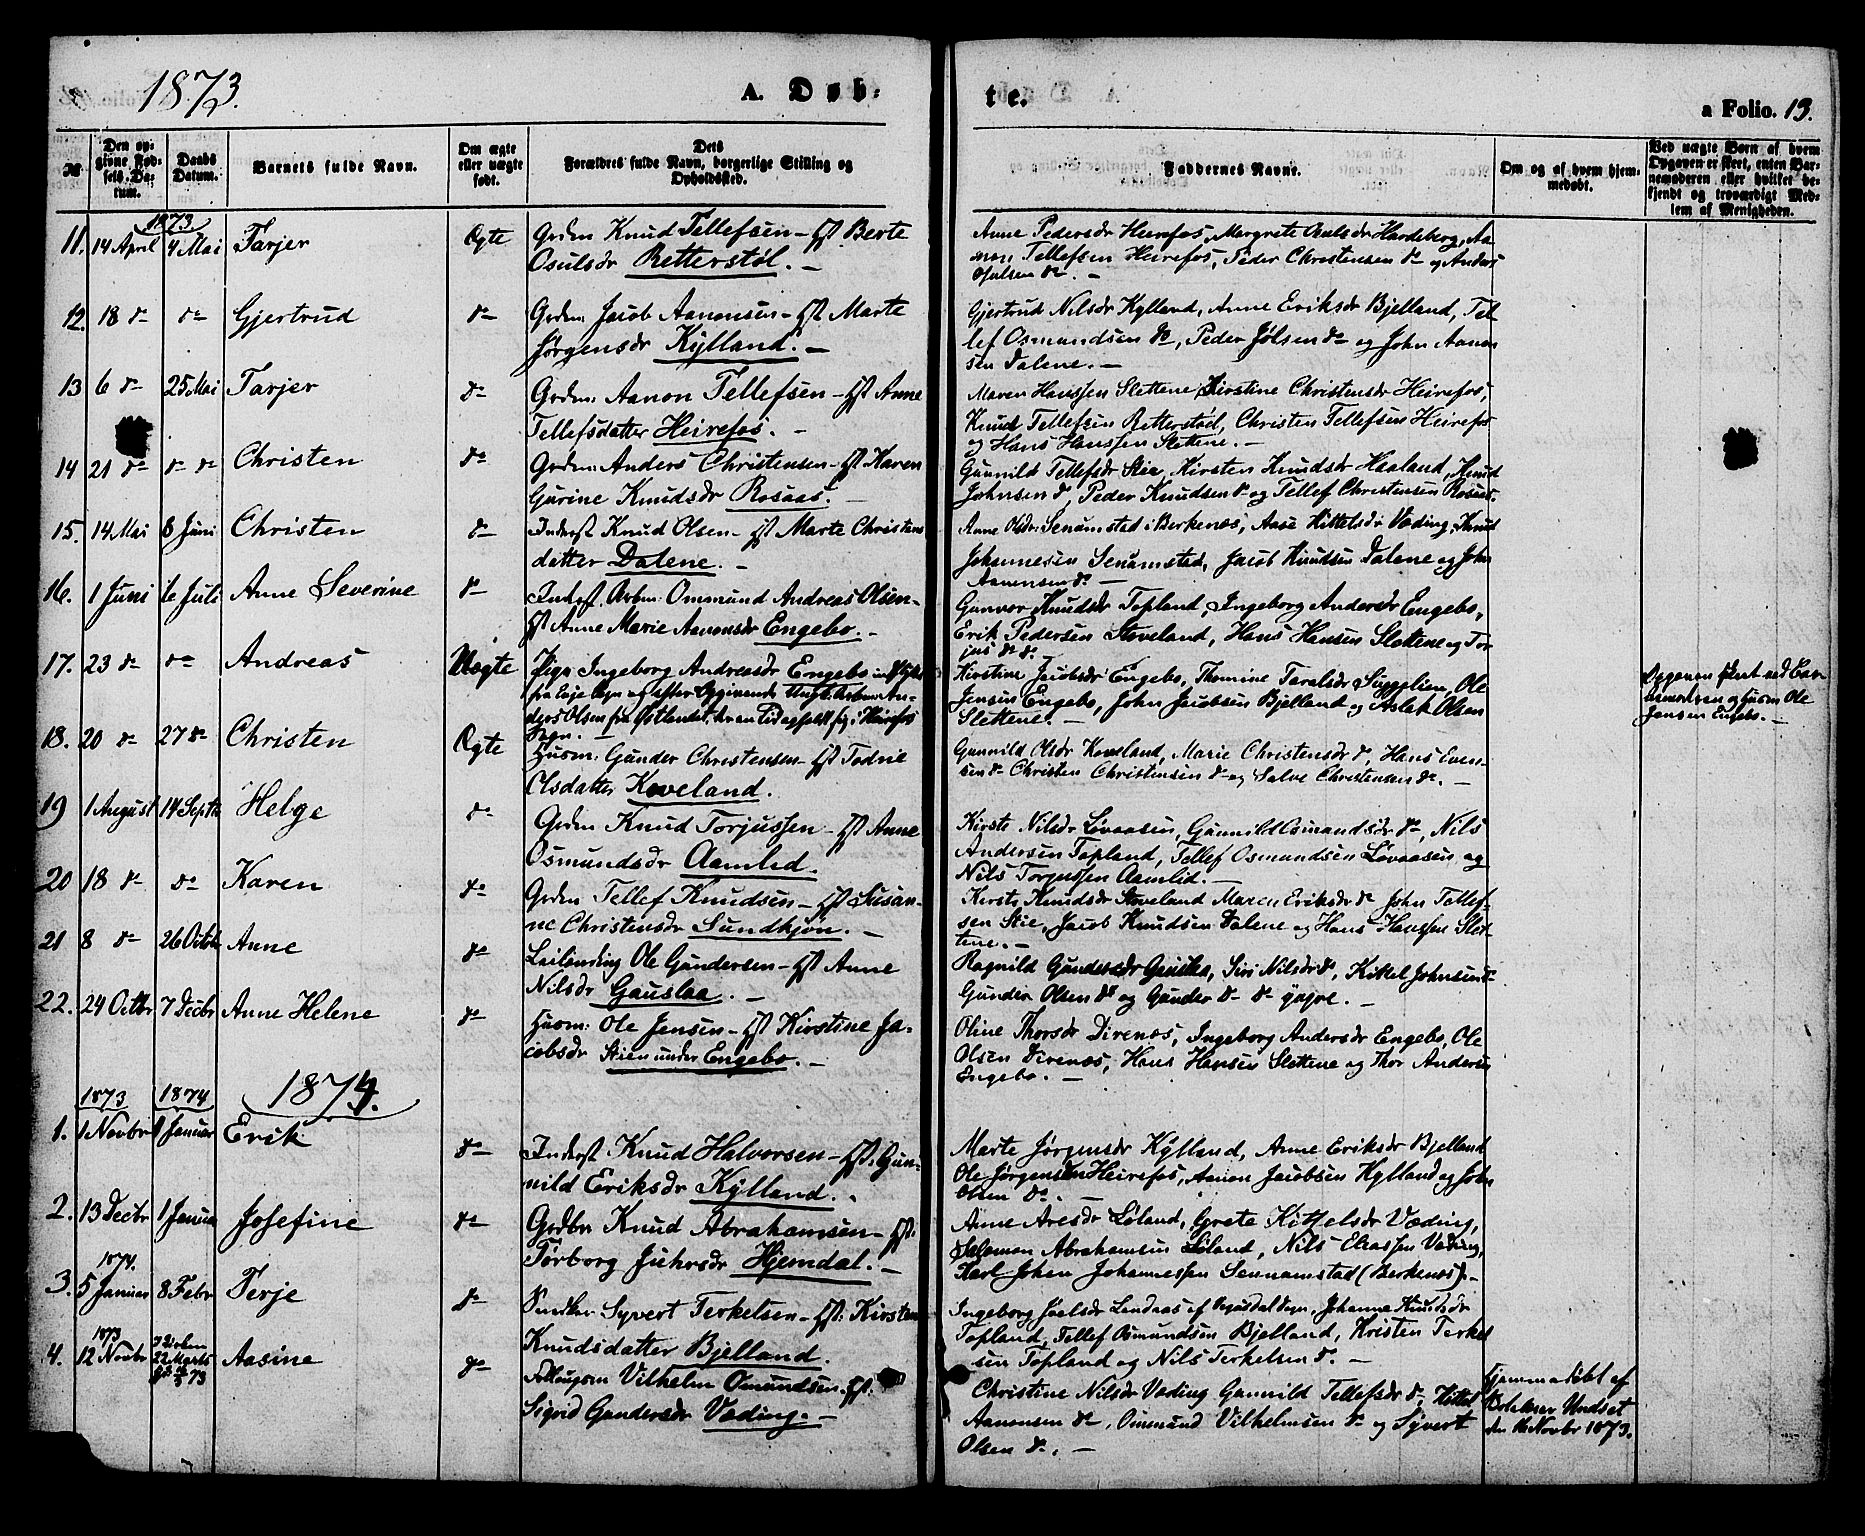 1873.
A. Døb-
te.
a Folio. 13.
№
Den op-
givne Fød-
sels-Da-
tum.
Daabs
Datum.
Barnets fulde Navn.
Om ægte
eller uægte
født.
Dets
Forældres fulde Navn, borgerlige Stilling og
Opholdssted.
Faddernes Navne.
Om og af hvem hjem-
medøbt.
Ved uægte Børn af hvem
Opgaven er skeet, enten Bar-
nemoderen eller hvilket be-
kjendt og troværdigt Med-
lem af Menigheden.
1873
11. 14 April 4 Mai Tarjer Ægte Grdm Knud Tellefsen - Hst Berte
Osulsdr Retterstøl. -
Anne Pedersdr Heirefos, Margrete Osulsdr Hardeberg, Aa-
non Tellefsen Heirefos, Peder Christensen do og Anders
Osulsen do. -
12. 18 do do Gjertrud do Grdm: Jacob Aanonsen - Hst Marte
Jørgensdr Kylland. -
Gjertrud Nilsdr Kylland, Anne Eriksdr Bjelland, Tel-
lef Osmundsen do, Peder Jølsen do og John Aanon
sen Dalene. -
13 6 do 25 Mai Tarjer do Grdm: Aanon Tellefsen - Hst Anne
Tellefsdatter Heirefos. -
Maren Hanssen Slettene, Kirstine Christensdr Heirefos,
Knud Tellefsen Retterstød, Christen Tellefsen Heirefos
og Hans Hanssen Slettene. -
14 21 do do do Christen do Grdm: Anders Christensen - Hst Karen
Gurine Knudsdr Rosaas. -
Gunnild Tellefsdr Stie, Kirsten Knudsdr Haaland, Knud
Johnsen do, Peder Knudsen do og Tellef Christensen Rosaas.
15. 14 Mai 8 Juni Christen do Inderst Knud Olsen - Hst Marte Christens
datter Dalene. -
Anne Olsdr: Senumstad i Berkenes, Aase Kittelsdr Væding, Knud
Johannesen Senumstad, Jacob Knudsen Dalene og John
Aanonsen do -
16. 1 Juni 6 Juli Anne Severine do Inderst. Arbm: Ommund Andreas Olsen -
Hst Anne Marie Aanonsdr Engebo. -
Gunvor Knudsdr Topland, Ingeborg Andersdr Engebo,
Erik Pedersen Stoveland, Hans Hansen Slettene og Tor
jus do do.
17. 23 do do Andreas Uægte Pige Ingeborg Andreasdr Engebo
fra Eie Sogn og efter Opgivende Ungk. Arbm An-
ders Olsen fra Østlandet, der en Tid opholdt sig i Heirefos
Sogn. -
Kirstine Jacobsdr Engebo, Thomine Taralsdr Suggelien, Ole
Jensen Engebo, John Jacobsen Bjelland og Aslak Olsen
Slettene. -
Opgaven skeet ved Bar-
nemoderen og Husm Ole
Jensen Engebo. -
18. 20 do 27 do Christen Ægte Husm: Gunder Christensen - Hst Todne
Olsdatter Koveland.
Gunnild Olsdr Koveland, Marie Christensdr do, Hans Even-
sen do Christen Christensen do og Salve Christensen do. -
19 1 August 14 Septb Helge do Grdm Knud Torjussen - Hst Anne
Osmundsdr Aamlid.
Kirste Nilsdr Løvaasen, Gunnild Osmundsdr do, Nils
Andersen Topland, Tellef Osmundsen Løvaasen og
Nils Torjussen Aamlid. -
20 18 do do Karen do Grdm Tellef Knudsen - Hst Susan-
ne Christensdr Sundkjøn. -
Kirste Knudsdr Stoveland Maren Eriksdr do John Tellef-
sen Stie, Jacob Knudsen Dalene og Hans Hanssen Slet-
tene. -
21 8 do 26 Octbr Anne do Leilending Ole Gundersen - Hst Anne
Nilsdr Gauslaa. -
Ragnild Gundersdr Gauslaa, Siri Nilsdr do, Kittel Johnsen do
Gunder Olsen do og Gunder do do yngre. -
22. 24 Octbr 7 Decbr Anne Helene do Husm: Ole Jensen - Hst Kirstine Ja-
cobsdr Stien under Engebo. -
Oline Thorsdr Direnæs, Ingeborg Andersdr Engebo, Ole
Olsen Direnæs, Hans Hansen Slettene og Thor Andersen
Engebo. -
1873 1874 1874.
1. 1 Novbr 1 Januar Erik do Inderst Knud Halvorsen - Hst: Gun-
nild Eriksdr Kylland.
Marte Jørgensdr Kylland, Anne Eriksdr Bjelland
Ole Jørgensen Heirefos, Aanon Jacobsen Kylland og John
Olsen do. -
2. 13 Decbr 1 Januar Josefine do Grdbr Knud Abrahamsen - Hst:
Torborg Juhrsdr Hjemdal. -
Anne Aresdr Løland, Grete Kittelsdr Væding,
Salomon Abrahamsen Løland, Nils Eliassen Væding,
Karl Johan Johannessen Sennumstad (Berkenes). -
1874.
3. 5 Januar 8 Febr Terje do Syvert Terkelsen - Hst: Kirsten
Knudsdatter Bjelland.
Ingeborg Joelsdr Landaas af Vegusdal Sogn, Johanne Knudsdr
Topland, Tellef Osmundsen Bjelland, Kristen Terkel
sen Topland og Nils Terkelsen do. -
1873
4. 12 Novbr i Kirken
22 Marts
73 Aasine do Vilhelm Omundsen - Hst:
Sigrid Gundersdr Væding. -
Christine Nilsdr Væding Gunnild Tellefsdr do, Kittel
Aanonsen do, Ommund Vilhelmsen do og Syvert
Olsen do. -
Hjemmedøbt af
Undset
den 16 Novbr 1873.